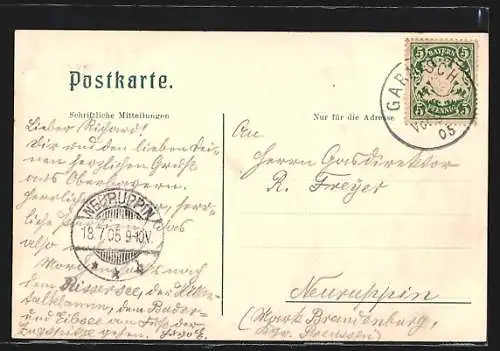 Postkarte.
Schriftliche Mitteilungen
Nur für die Adresse
5 BAYERN 5
5 PFENNIG 5
GARMISCH
05
Lieber Richard!
Dir und den lieben Dei-
nen herzlichen Gruß
aus Oberbayern.
Herrliche
also
nach
dem Rissersee, der
talklamm, dem Bader-
und Eibsee am Fuße der
Zugspitze gehen.
NEURUPPIN
18.7.05 9-10V.
An
Herrn Gasdirektor
R. Freyer
Neuruppin
(Mark Brandenburg,
Kgr. Preussen)